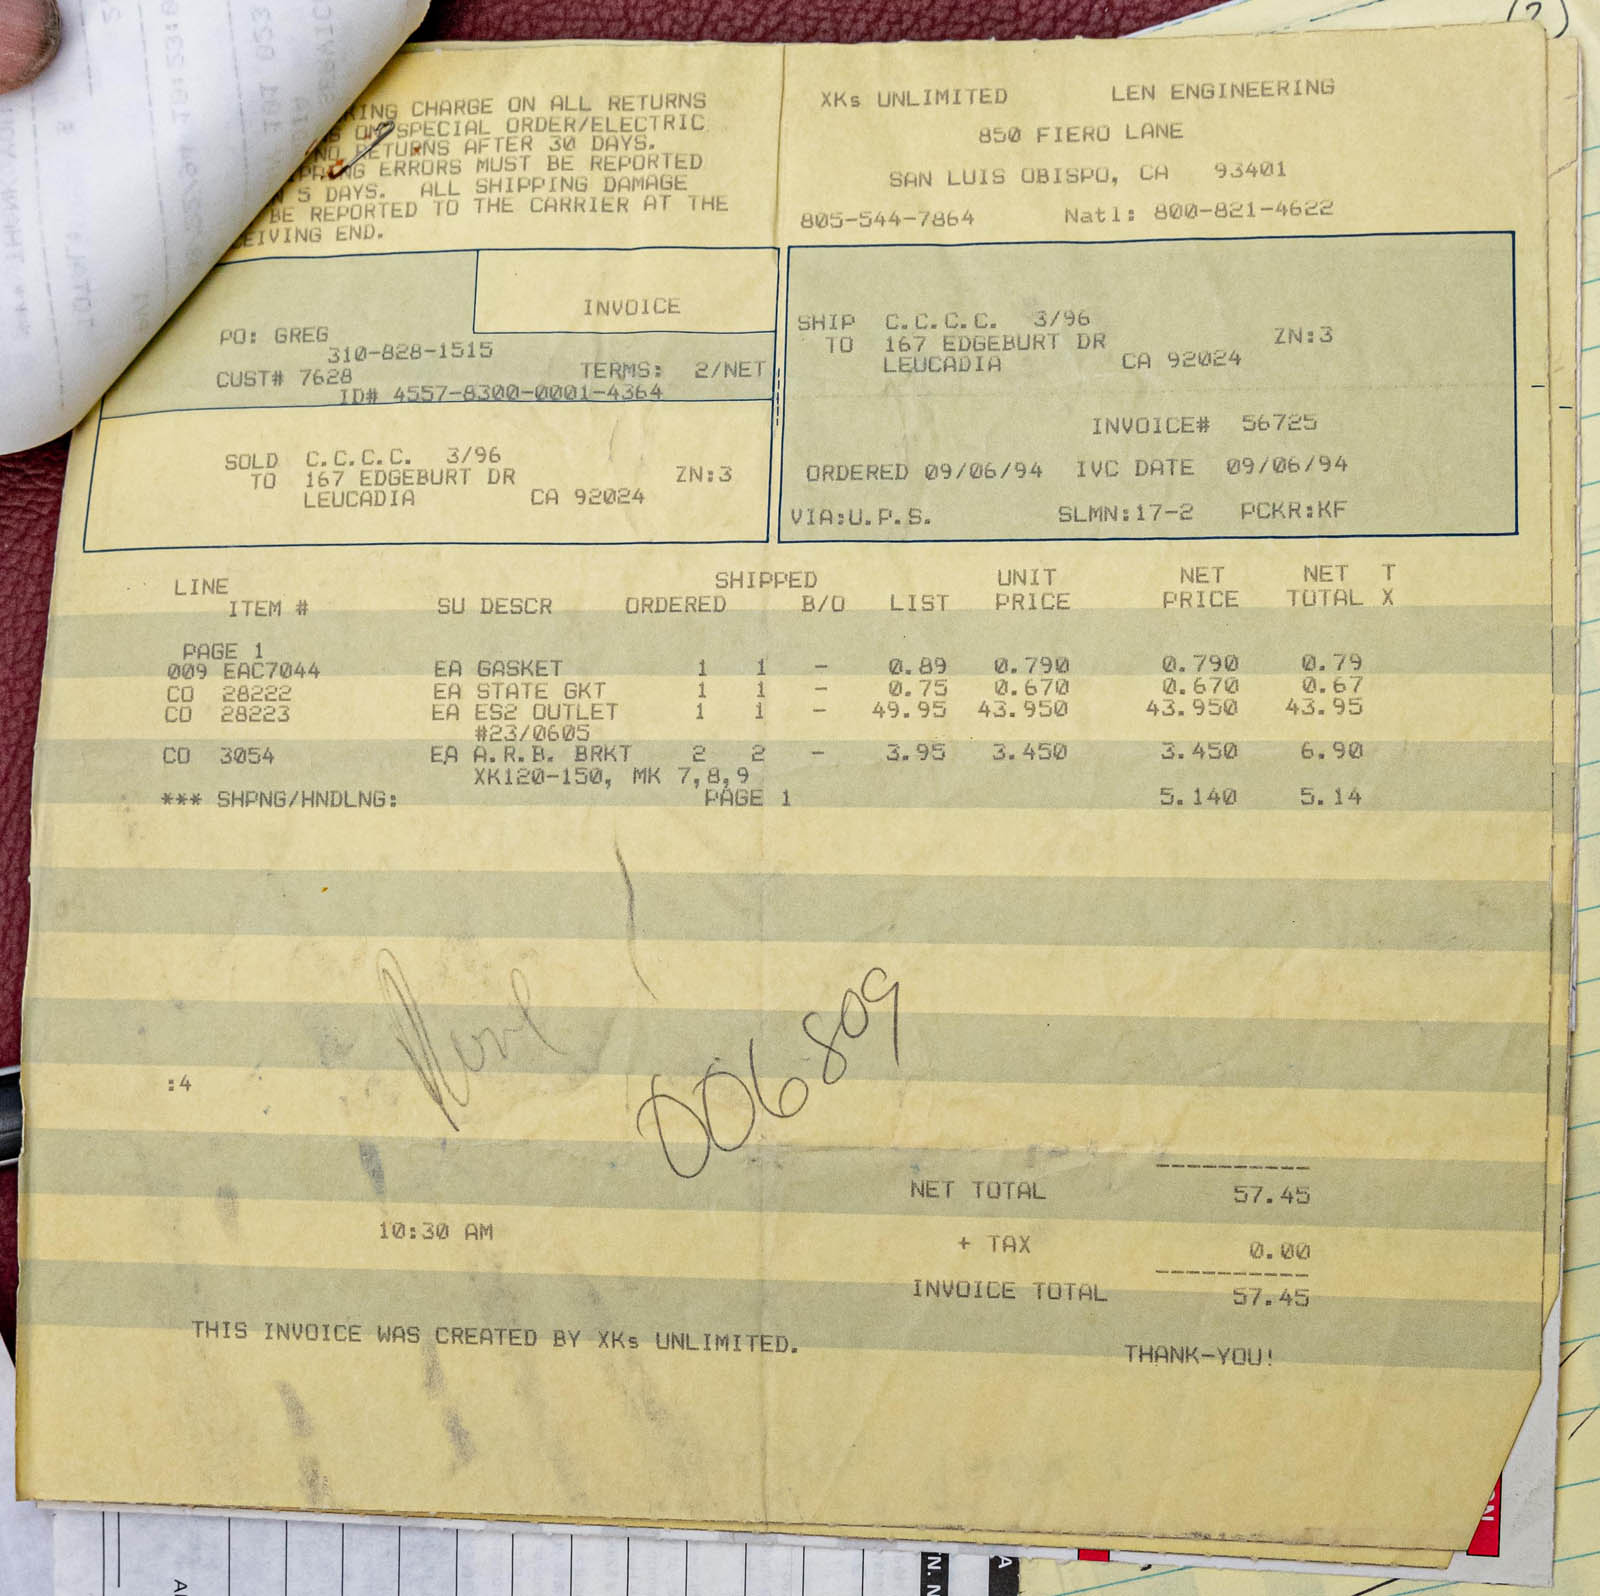 RING CHARGE ON ALL RETURNS
ON SPECIAL ORDER/ELECTRIC
NO RETURNS AFTER 30 DAYS.
ERRORS MUST BE REPORTED
5 DAYS. ALL SHIPPING DAMAGE
BE REPORTED TO THE CARRIER AT THE
EIVING END.
XKs UNLIMITED LEN ENGINEERING
850 FIERO LANE
SAN LUIS OBISPO, CA 93401
805-544-7864 Natl: 800-821-4622
INVOICE
PO: GREG
310-828-1515
CUST# 7628 TERMS: 2/NET
ID# 4557-8300-0001-4364
SOLD C.C.C.C. 3/96
TO 167 EDGEBURT DR ZN:3
LEUCADIA CA 92024
SHIP C.C.C.C. 3/96
TO 167 EDGEBURT DR ZN:3
LEUCADIA CA 92024
INVOICE# 56725
ORDERED 09/06/94 IVC DATE 09/06/94
VIA:U.P.S. SLMN:17-2 PCKR:KF
LINE SHIPPED UNIT NET NET T
ITEM # SU DESCR ORDERED B/O LIST PRICE PRICE TOTAL X
PAGE 1
009 EAC7044 EA GASKET 1 1 - 0.89 0.790 0.790 0.79
CO 28222 EA STATE GKT 1 1 - 0.75 0.670 0.670 0.67
CO 28223 EA ES2 OUTLET 1 1 - 49.95 43.950 43.950 43.95
#23/0605
CO 3054 EA A.R.B. BRKT 2 2 - 3.95 3.450 3.450 6.90
XK120-150, MK 7,8,9
*** SHPNG/HNDLNG: PAGE 1 5.140 5.14
006809
:4
NET TOTAL 57.45
10:30 AM
+ TAX 0.00
INVOICE TOTAL 57.45
THIS INVOICE WAS CREATED BY XKs UNLIMITED.
THANK-YOU!